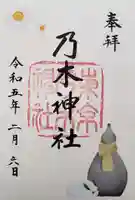 奉拝
乃木神社
令和五年二月六日